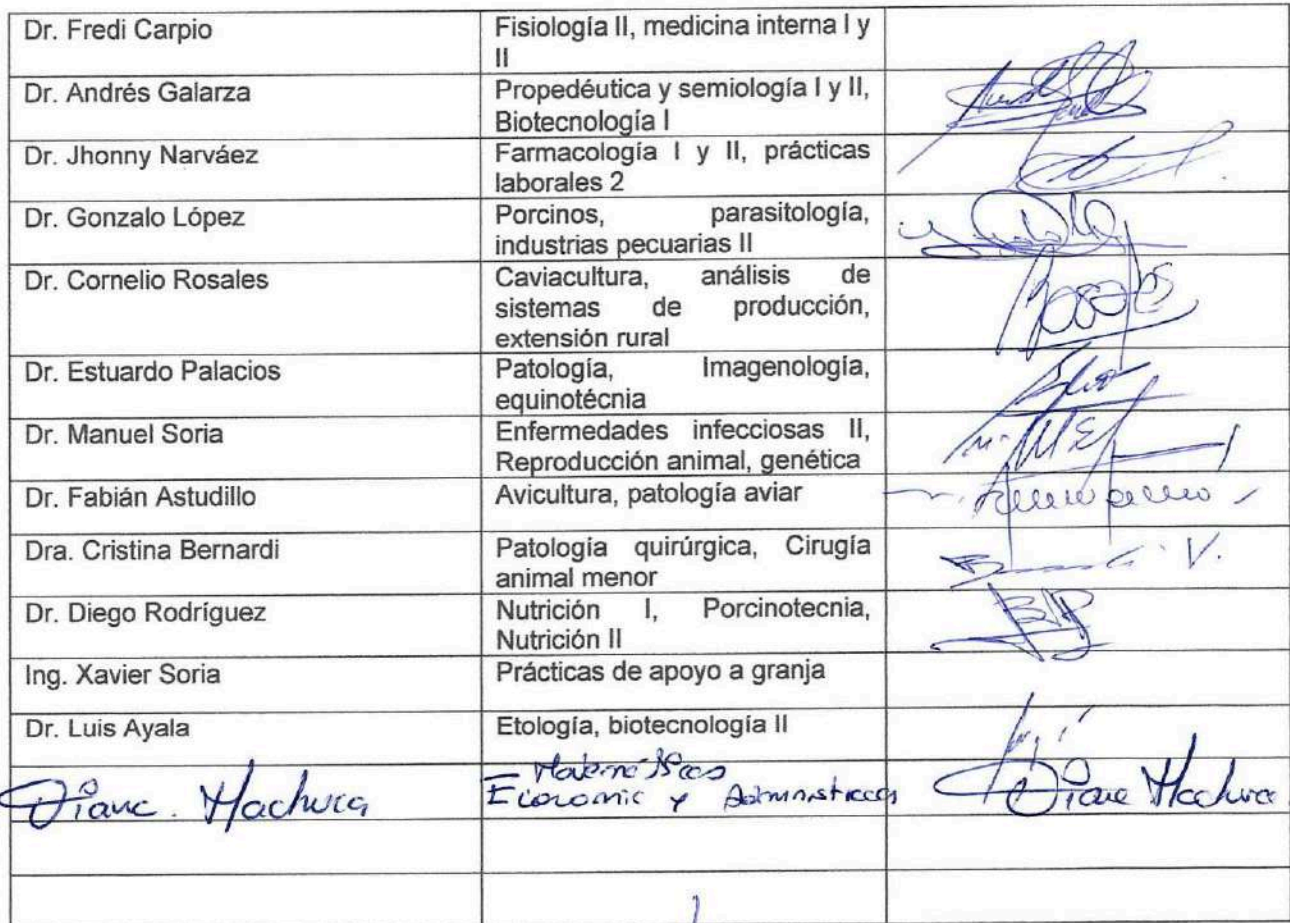 Dr. Fredi Carpio
Fisiología II, medicina interna I y
II
Dr. Andrés Galarza
Propedéutica y semiología I y II,
Biotecnología I
Dr. Jhonny Narváez
Farmacología I y II, prácticas
laborales 2
Dr. Gonzalo López
Porcinos, parasitología,
industrias pecuarias II
Dr. Cornelio Rosales
Caviacultura, análisis de
sistemas de producción,
extensión rural
Rosales
Dr. Estuardo Palacios
Patología, Imagenología,
equinotécnia
Dr. Manuel Soria
Enfermedades infecciosas II,
Reproducción animal, genética
Dr. Fabián Astudillo
Avicultura, patología aviar
Dra. Cristina Bernardi
Patología quirúrgica, Cirugía
animal menor
Dr. Diego Rodríguez
Nutrición I, Porcinotecnia,
Nutrición II
Ing. Xavier Soria
Prácticas de apoyo a granja
Dr. Luis Ayala
Etología, biotecnología II
Diana Machuca
Economic y
Diana Machuca